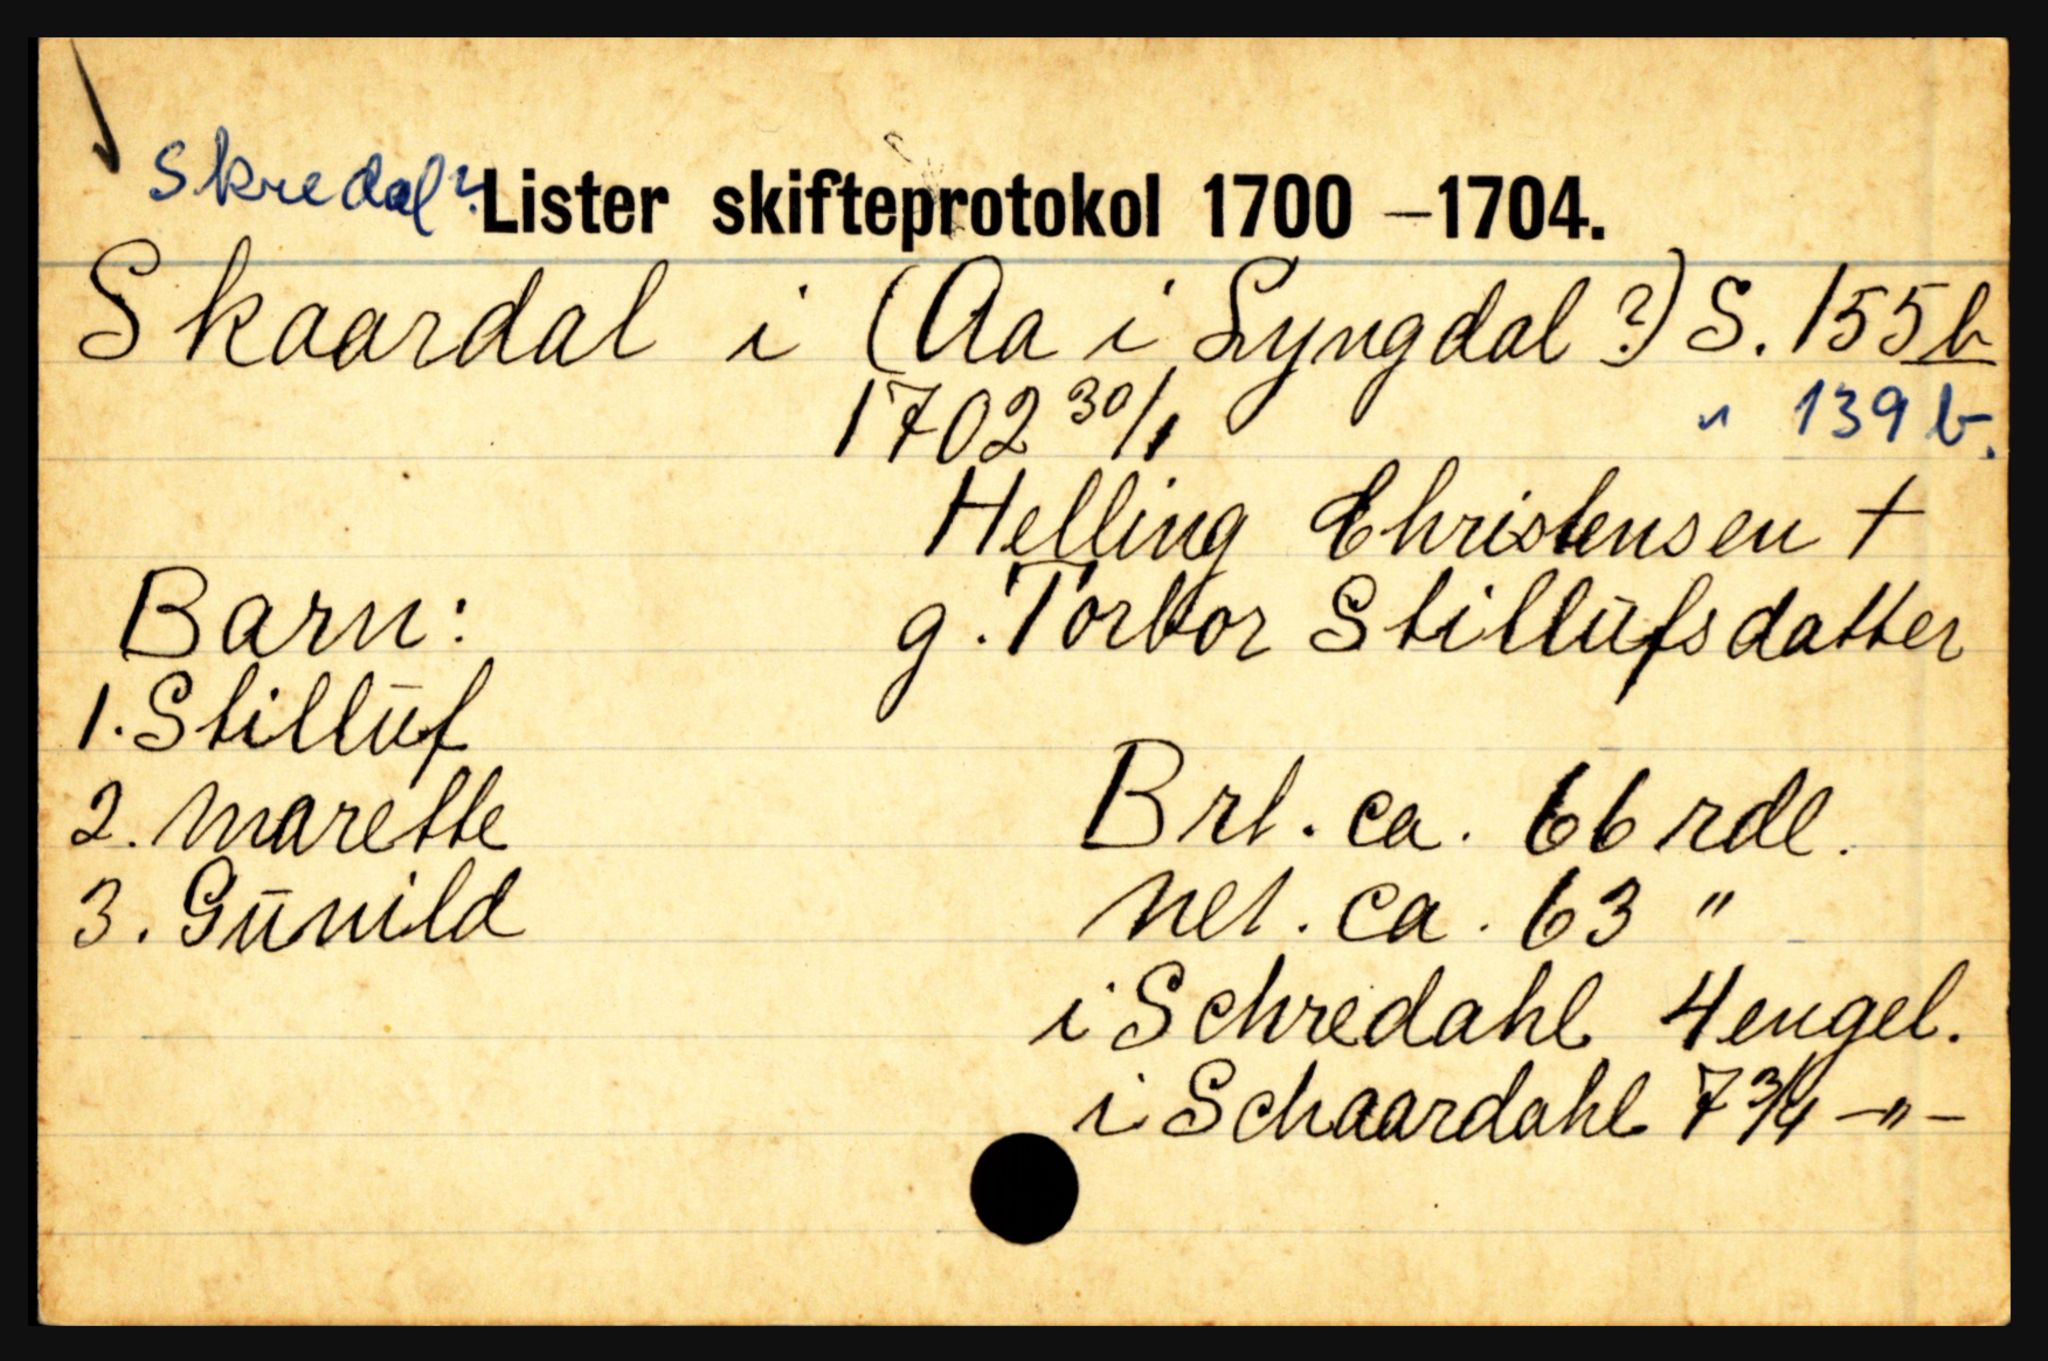 Skredal?
Lister skifteprotokol 1700 –1704.
Skaardal i (Aa i Lyngdal?) S. 155b
1702 30/1 " 139 b.
Helling Christensen †
Barn: g. Torbor Stillufsdatter
1. Stilluf
2. Marette Brt. ca. 66 rdl.
3. Gunild Net. ca. 63 "
i Schredahl 4 engel.
i Schaardahl 7 3/4 –"–